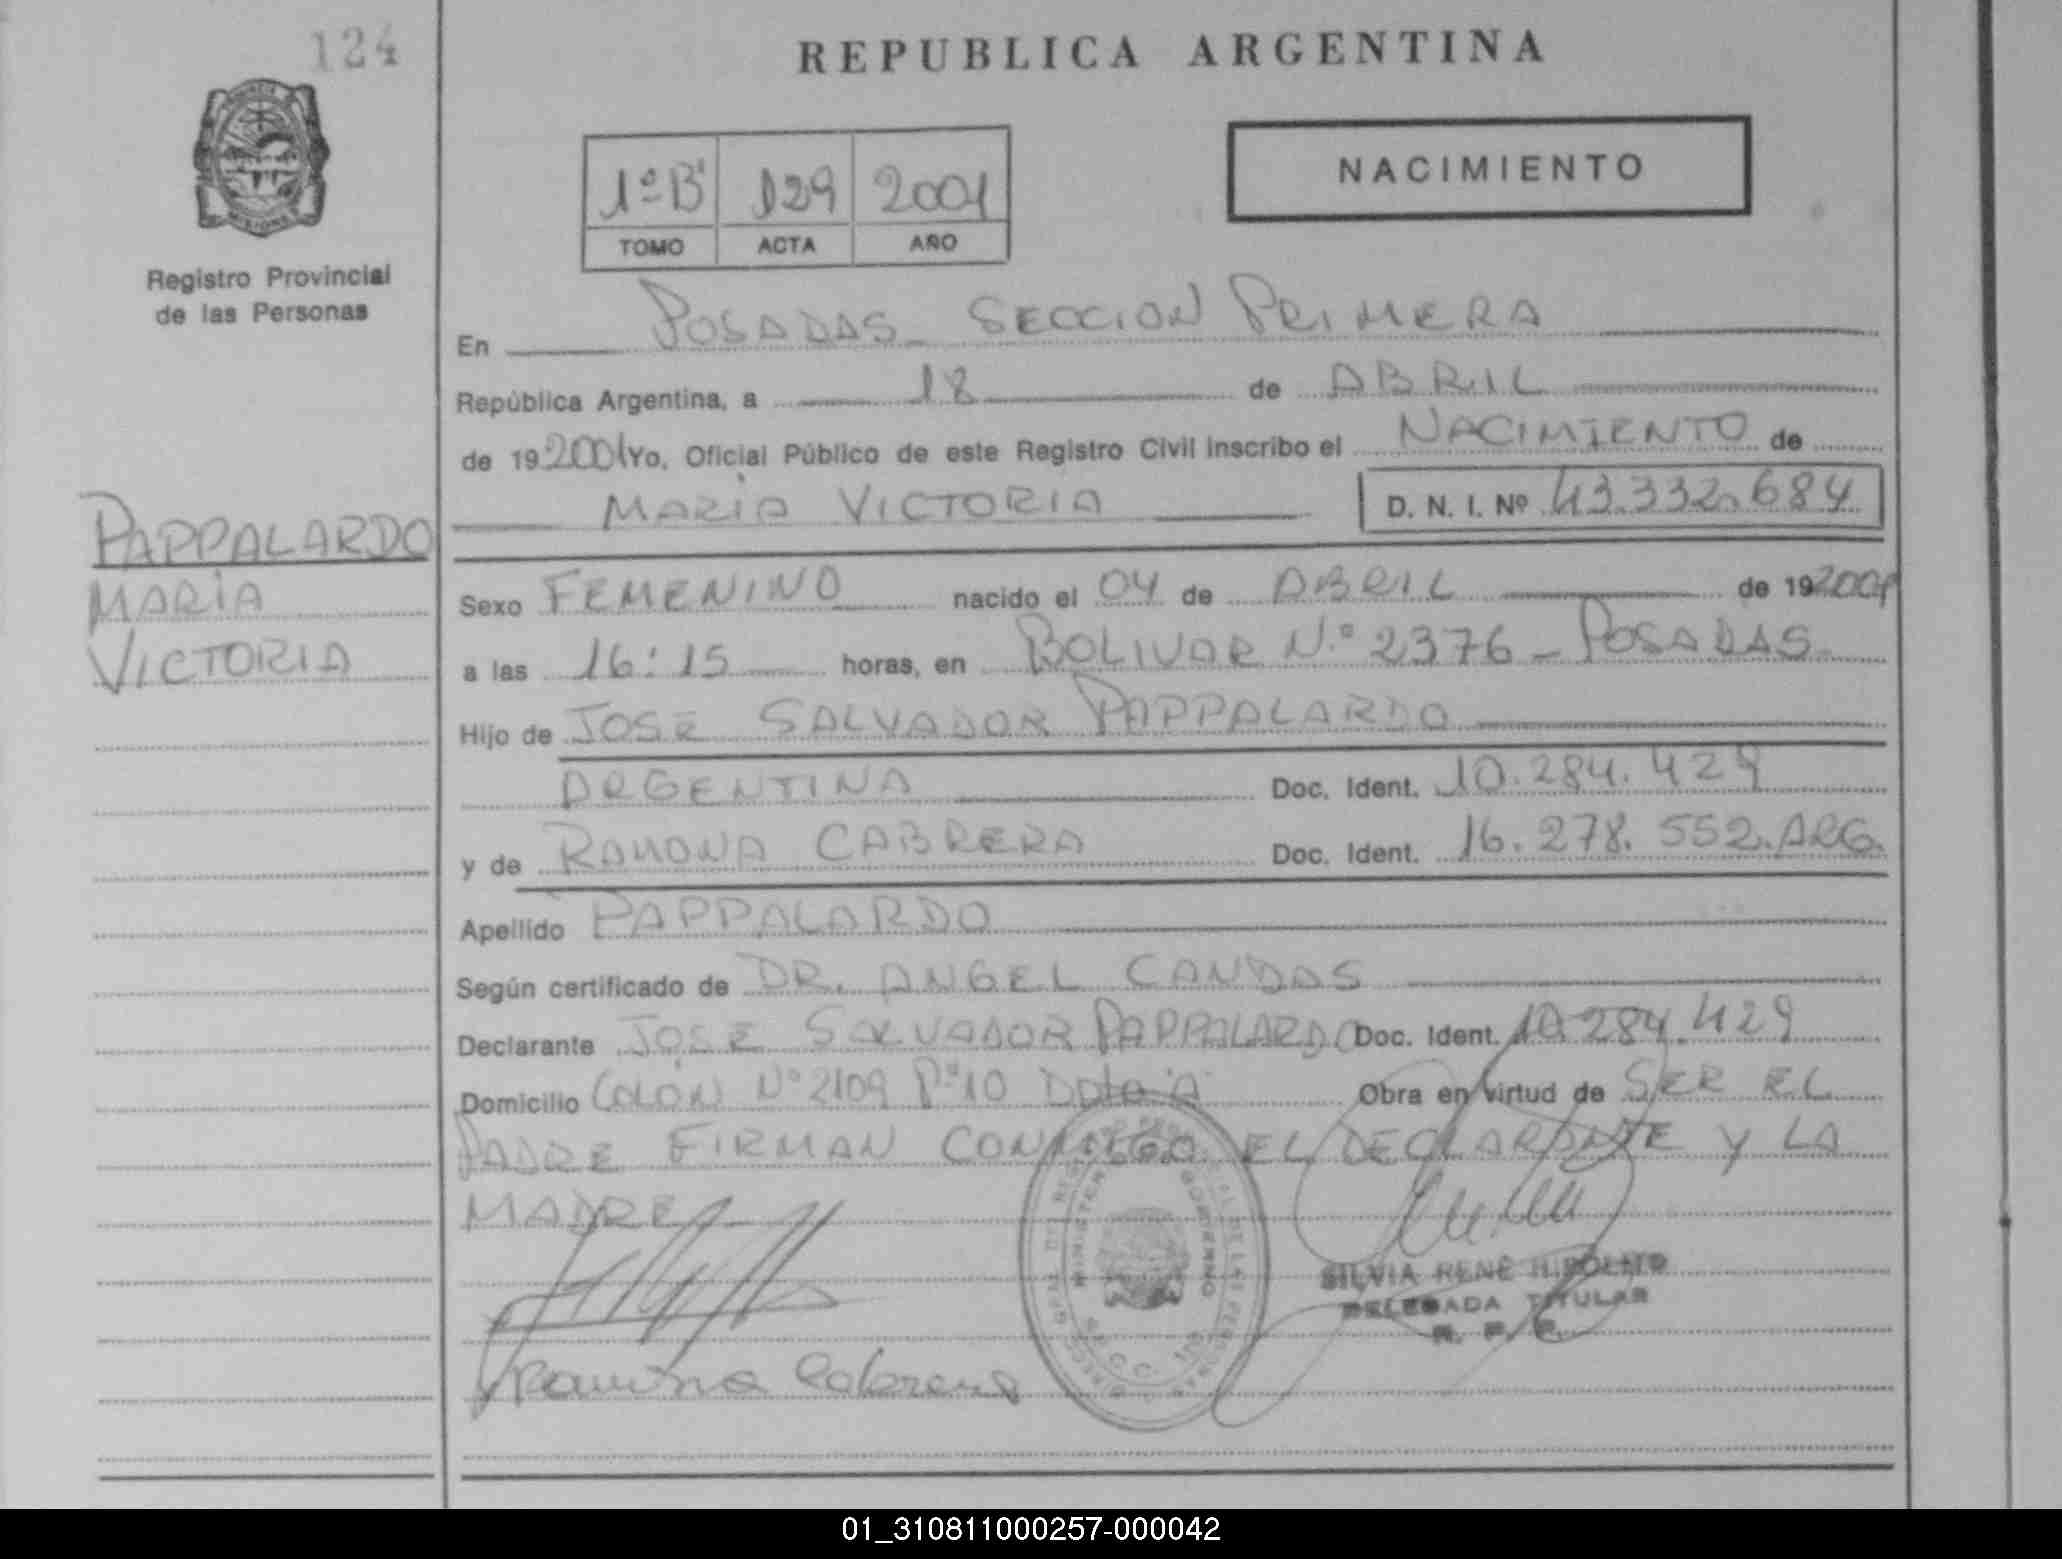 124
REPUBLICA ARGENTINA
NACIMIENTO
1º B' 129 2001
TOMO ACTA AÑO
Registro Provincial
de las Personas
En POSADAS SECCION PRIMERA
República Argentina, a 18 de ABRIL
de 19 2001 Yo, Oficial Público de este Registro Civil inscribo el NACIMIENTO de
MARIA VICTORIA D. N. I. Nº 43.332.684
PAPPALARDO
MARIA
VICTORIA
Sexo FEMENINO nacido el 04 de ABRIL de 19 2001
a las 16:15 horas, en BOLIVAR N.º 2376 - POSADAS
Hijo de JOSE SALVADOR PAPPALARDO
ARGENTINA Doc. Ident. 10.284.429
y de RAMONA CABRERA Doc. Ident. 16.278.552. ARG.
Apellido PAPPALARDO
Según certificado de DR. ANGEL CANDAS
Declarante JOSE SALVADOR PAPPALARDO Doc. Ident. 10.284.429
Domicilio COLON Nº 2109 Pº 10 Dpto A Obra en virtud de SER EL
PADRE FIRMAN CONMIGO EL DECLARANTE Y LA
MADRE
SILVIA RENE HIPOLITO
DELEGADA TITULAR
R. P. P.
Ramona Cabrera
MINISTER GOBIERNO
01_310811000257-000042